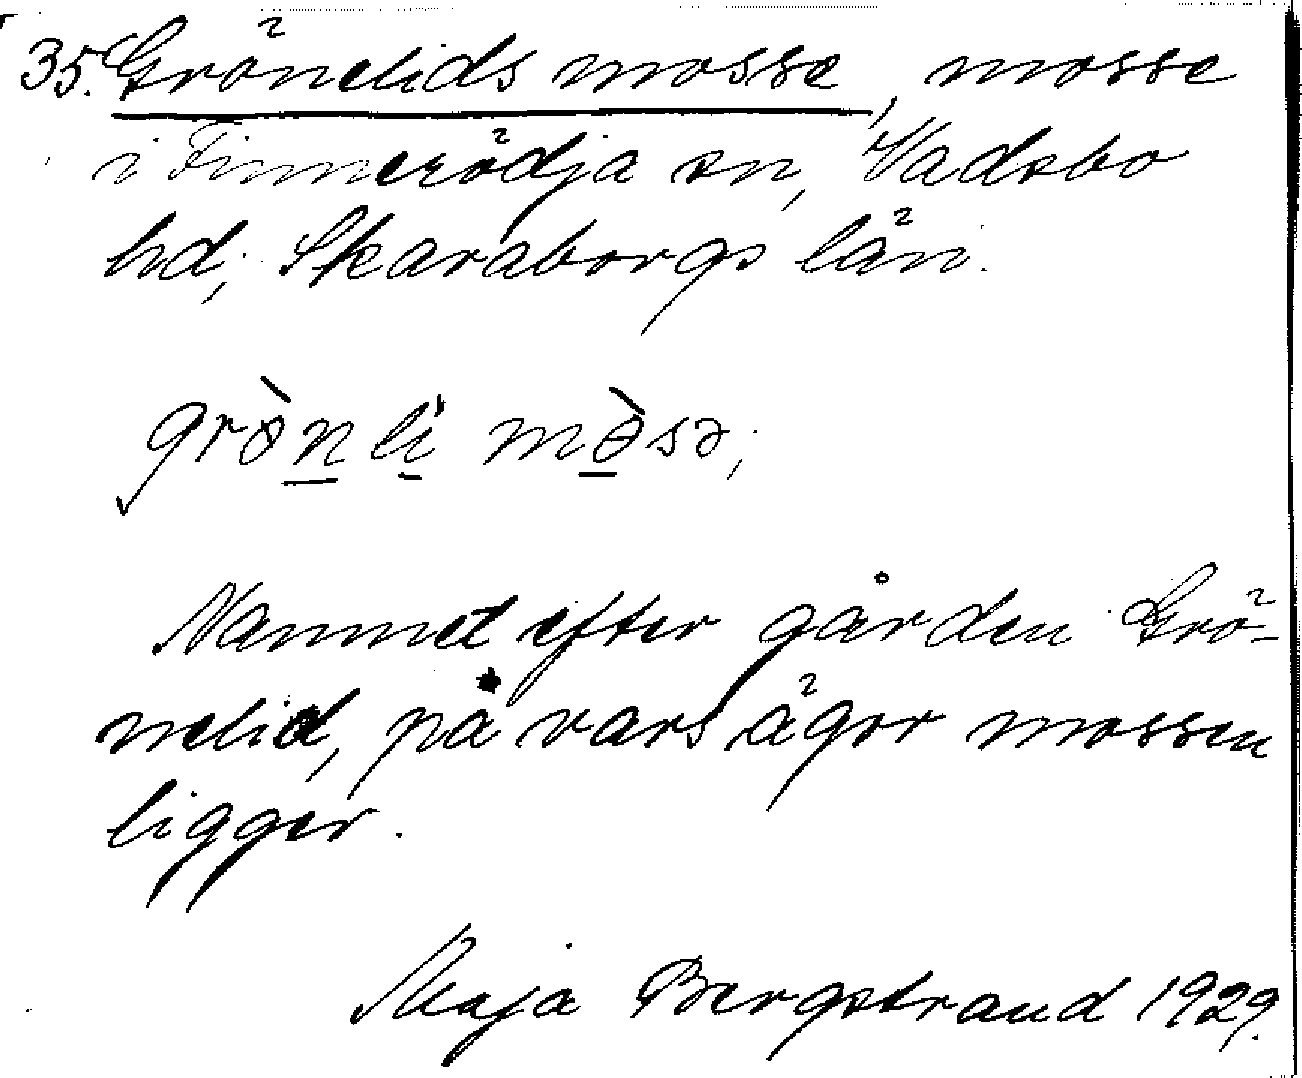 35. Grönelids mosse, mosse
i Finnerödja sn, Vadsbo
hd, Skaraborgs län.
grò̀n li mòsə;
Namnet efter gården Grö-
nelid, på vars ägor mossen
ligger.
Maja Bergstrand 1929.